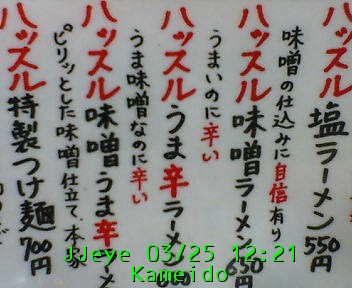 ハッスル塩ラーメン 550円
味噌の仕込みに自信有り
ハッスル味噌ラーメン 650円
うまいのに辛い
ハッスルうま辛ラーメン
うま味噌なのに辛い
ハッスル味噌うま辛ラーメ
ピリッとした味噌仕立て、本
ハッスル特製つけ麺 700円
JJeye 03/25 12:21
Kameido